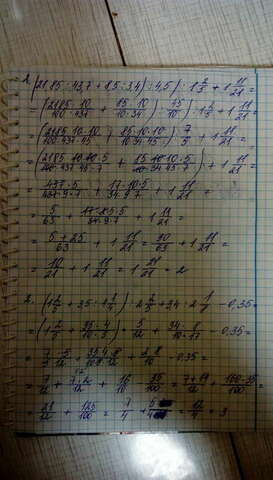 1. (21,85 : 43,7 + 8,5 : 3,4) : 4,5) : 1 2/5 + 1 11/21 =
= (2185/100 · 10/437 + 85/10 · 10/34) : 45/10) : 1 2/5 + 1 11/21 =
= (2185·10·10/100·437·45 + 85·10·10/10·34·45) : 7/5 + 1 11/21 =
= (2185·10·10·5/100·437·45·7 + 85·10·10·5/10·34·45·7) + 1 11/21 =
= 437·5/437·9·7 + 17·10·5/34·9·7 + 1 11/21 =
= 5/63 + 17·5·5/34·9·7 + 1 11/21 =
= 5+25/63 + 1 11/21 = 30/63 + 1 11/21 =
= 10/21 + 1 11/21 = 1 21/21 = 2
2. (1 2/5 + 3,5 : 1 1/4) : 2 2/5 + 3,4 : 2 1/8 - 0,35 =
= 7/12 + 7·2/12 + 16/10 - 35/100 = 7+14/12 + 160-35/100 =
= 21/12 + 125/100 = 7/4 + 5/4 = 12/4 = 3